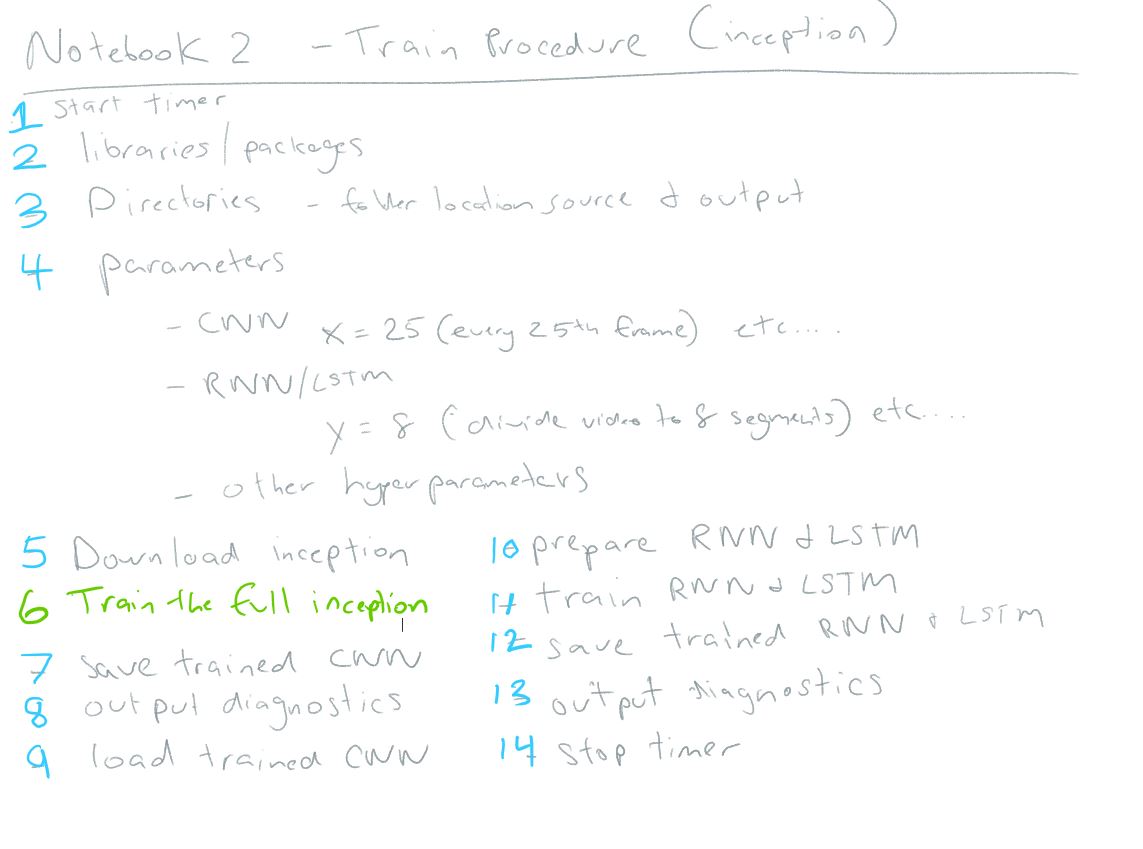 Notebook 2 - Train Procedure (inception)
1 Start timer
2 libraries/packages
3 Directories - folder location source & output
4 parameters
- CNN x = 25 (every 25th frame) etc....
- RNN/LSTM
y = 8 (divide video to 8 segments) etc....
- other hyperparameters
5 Download inception
6 Train the full inception
7 save trained CNN
8 output diagnostics
9 load trained CNN
10 prepare RNN & LSTM
11 train RNN & LSTM
12 save trained RNN & LSTM
13 output diagnostics
14 stop timer